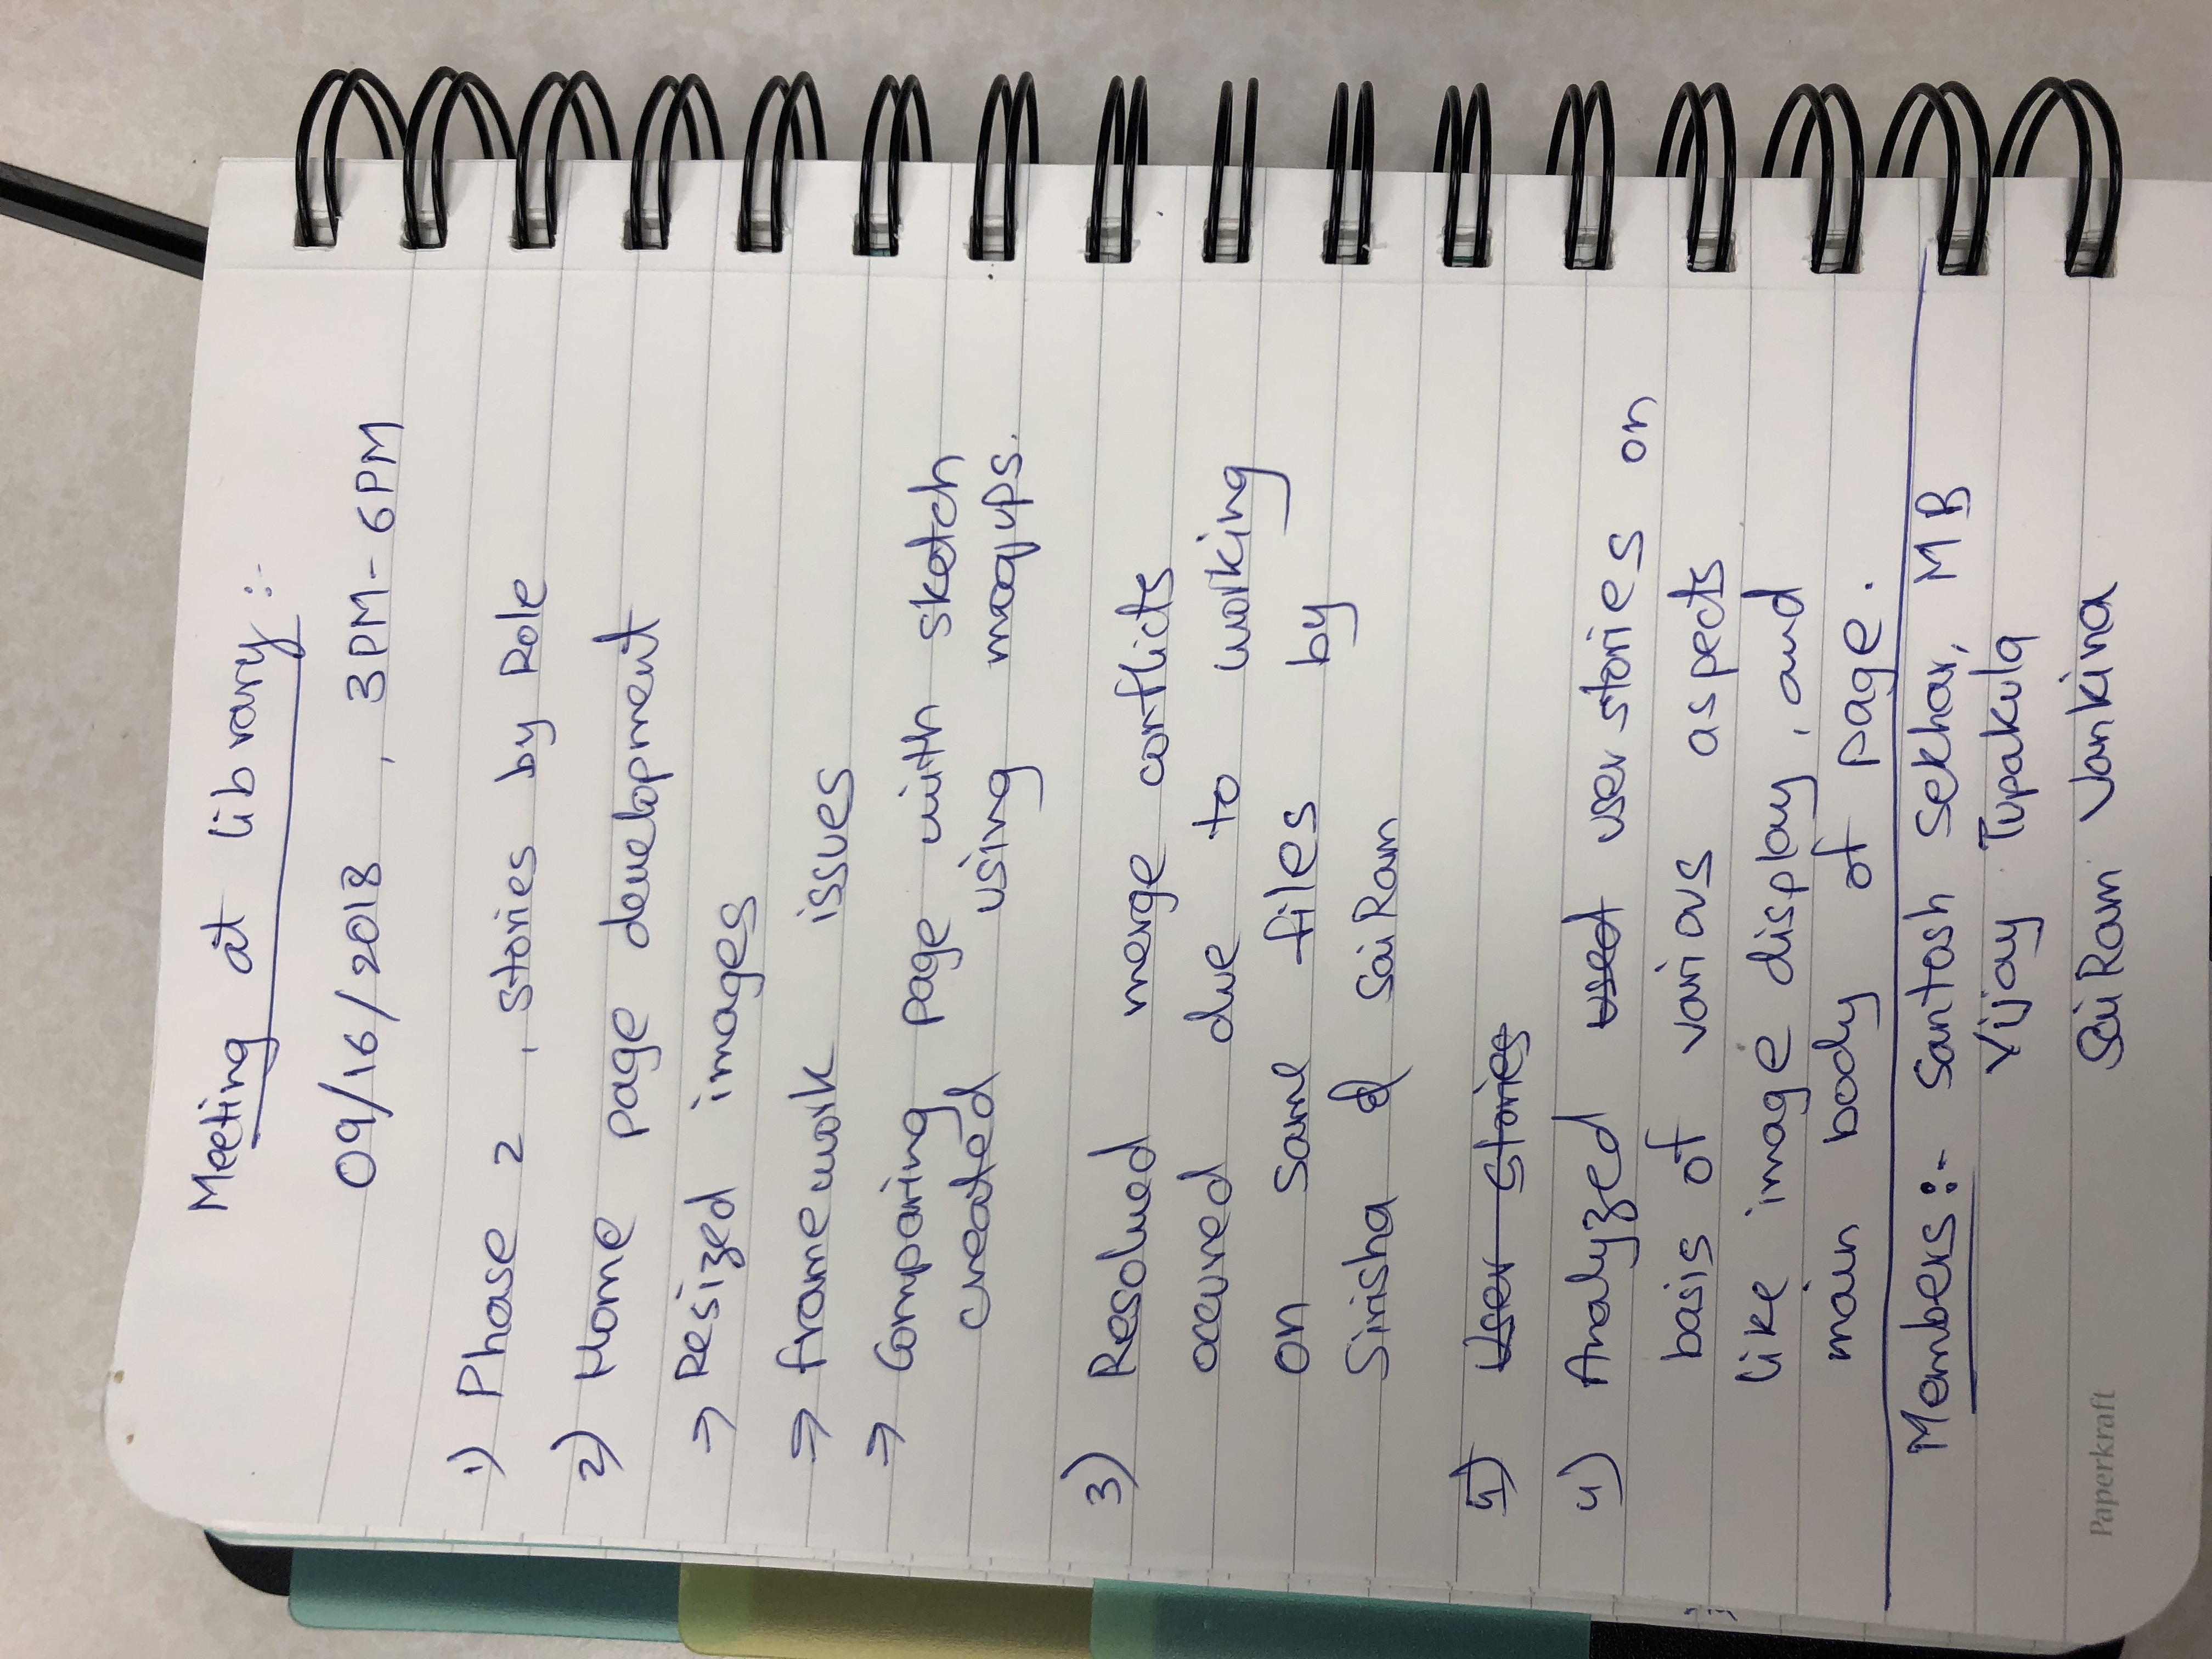 Meeting at library :-
09/16/2018 , 3PM-6PM
1) Phase 2 , stories by Role
2) Home page development
→ Resized images
→ framework issues
→ Comparing page with sketch
created using moqups.
3) Resolved merge conflicts
occured due to working
on same files by
Sirisha & SaiRam
4) User stories
4) Analyzed used user stories on
basis of various aspects
like image display, and
main body of page.
Members :- Santosh Sekhar, MB
Vijay Tupakula
SaiRam Vankina
Paperkraft